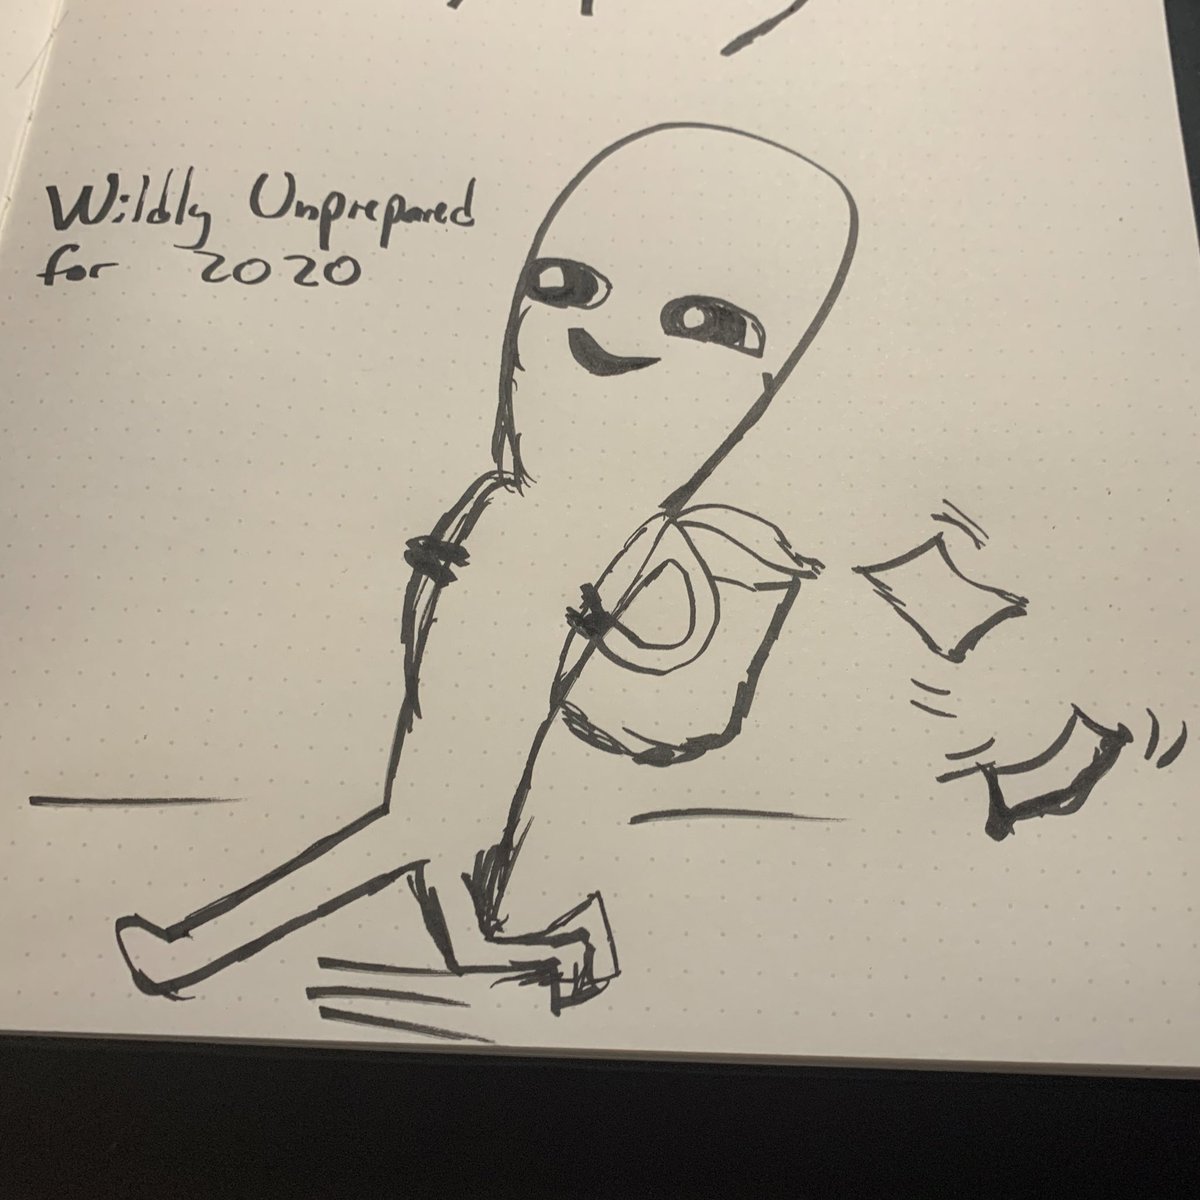 Wildly Unprepared
for 2020